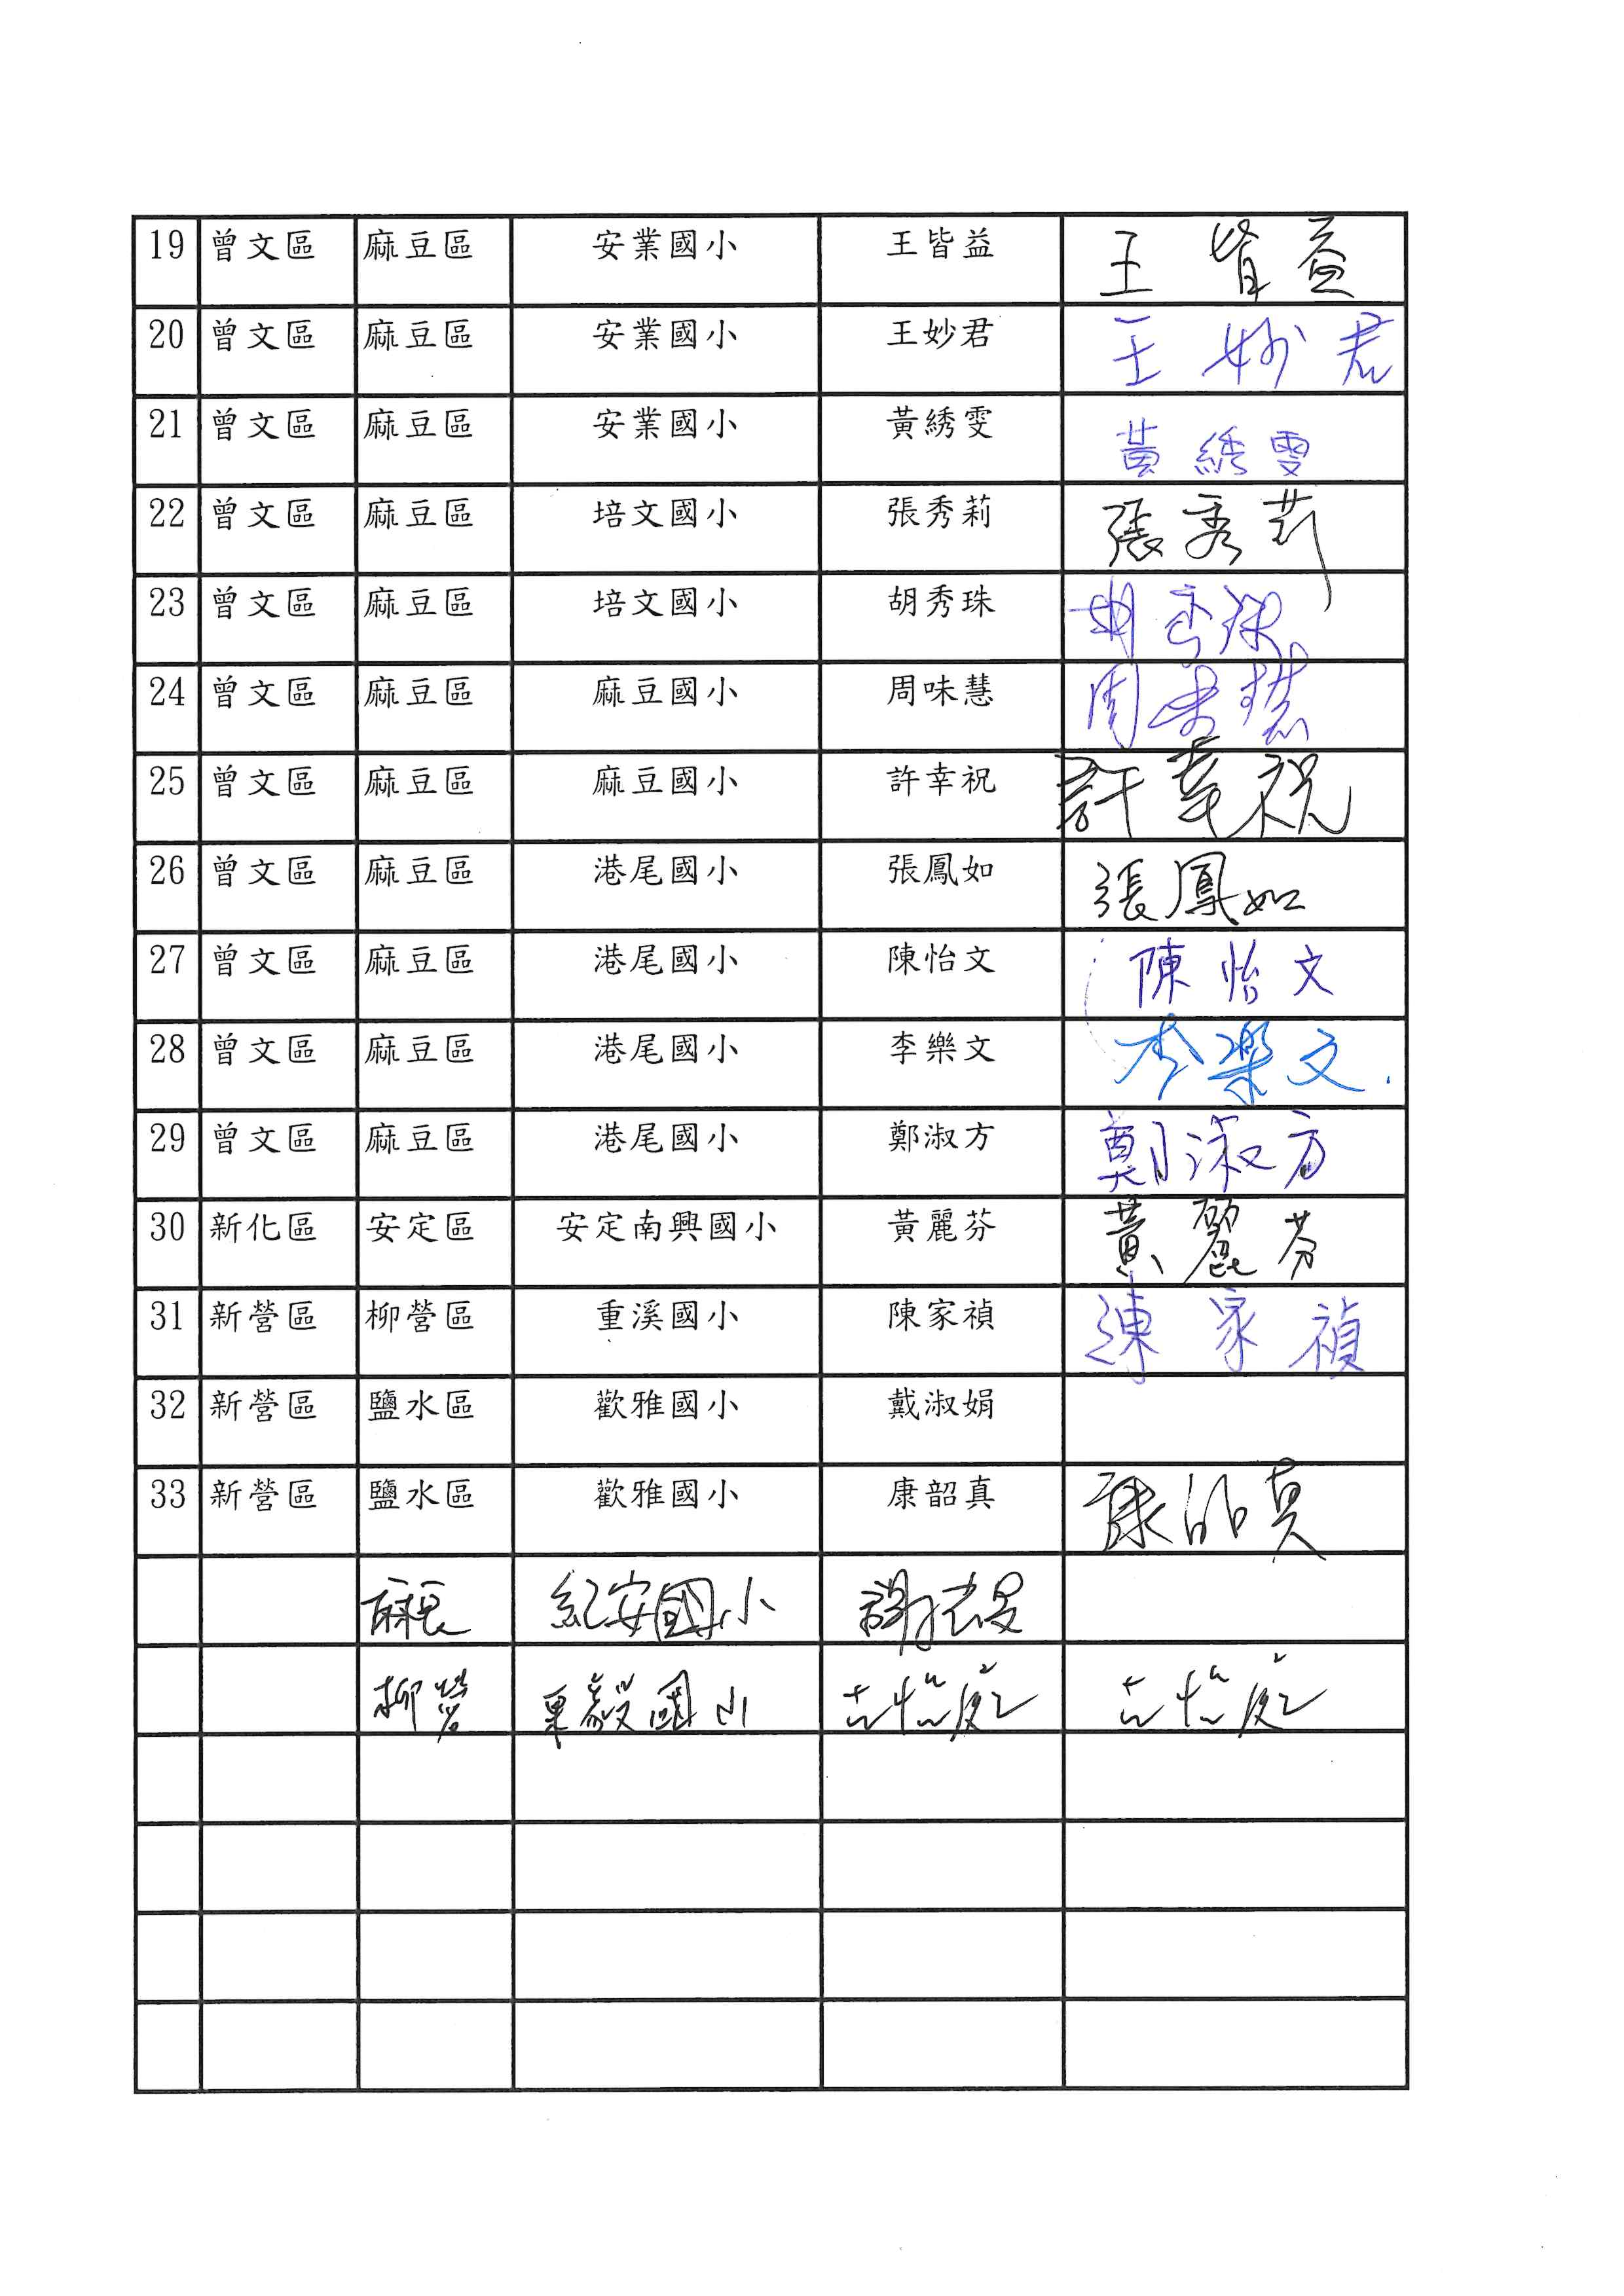 19 曾文區 麻豆區 安業國小 王皆益 王皆益
20 曾文區 麻豆區 安業國小 王妙君 王妙君
21 曾文區 麻豆區 安業國小 黃綉雯 黃綉雯
22 曾文區 麻豆區 培文國小 張秀莉 張秀莉
23 曾文區 麻豆區 培文國小 胡秀珠 胡秀珠
24 曾文區 麻豆區 麻豆國小 周味慧 周味慧
25 曾文區 麻豆區 麻豆國小 許幸祝 許幸祝
26 曾文區 麻豆區 港尾國小 張鳳如 張鳳如
27 曾文區 麻豆區 港尾國小 陳怡文 陳怡文
28 曾文區 麻豆區 港尾國小 李樂文 李樂文
29 曾文區 麻豆區 港尾國小 鄭淑方 鄭淑方
30 新化區 安定區 安定南興國小 黃麗芬 黃麗芬
31 新營區 柳營區 重溪國小 陳家禎 陳家禎
32 新營區 鹽水區 歡雅國小 戴淑娟
33 新營區 鹽水區 歡雅國小 康韶真 康韶真
麻豆 紀安國小
柳營 果毅國小